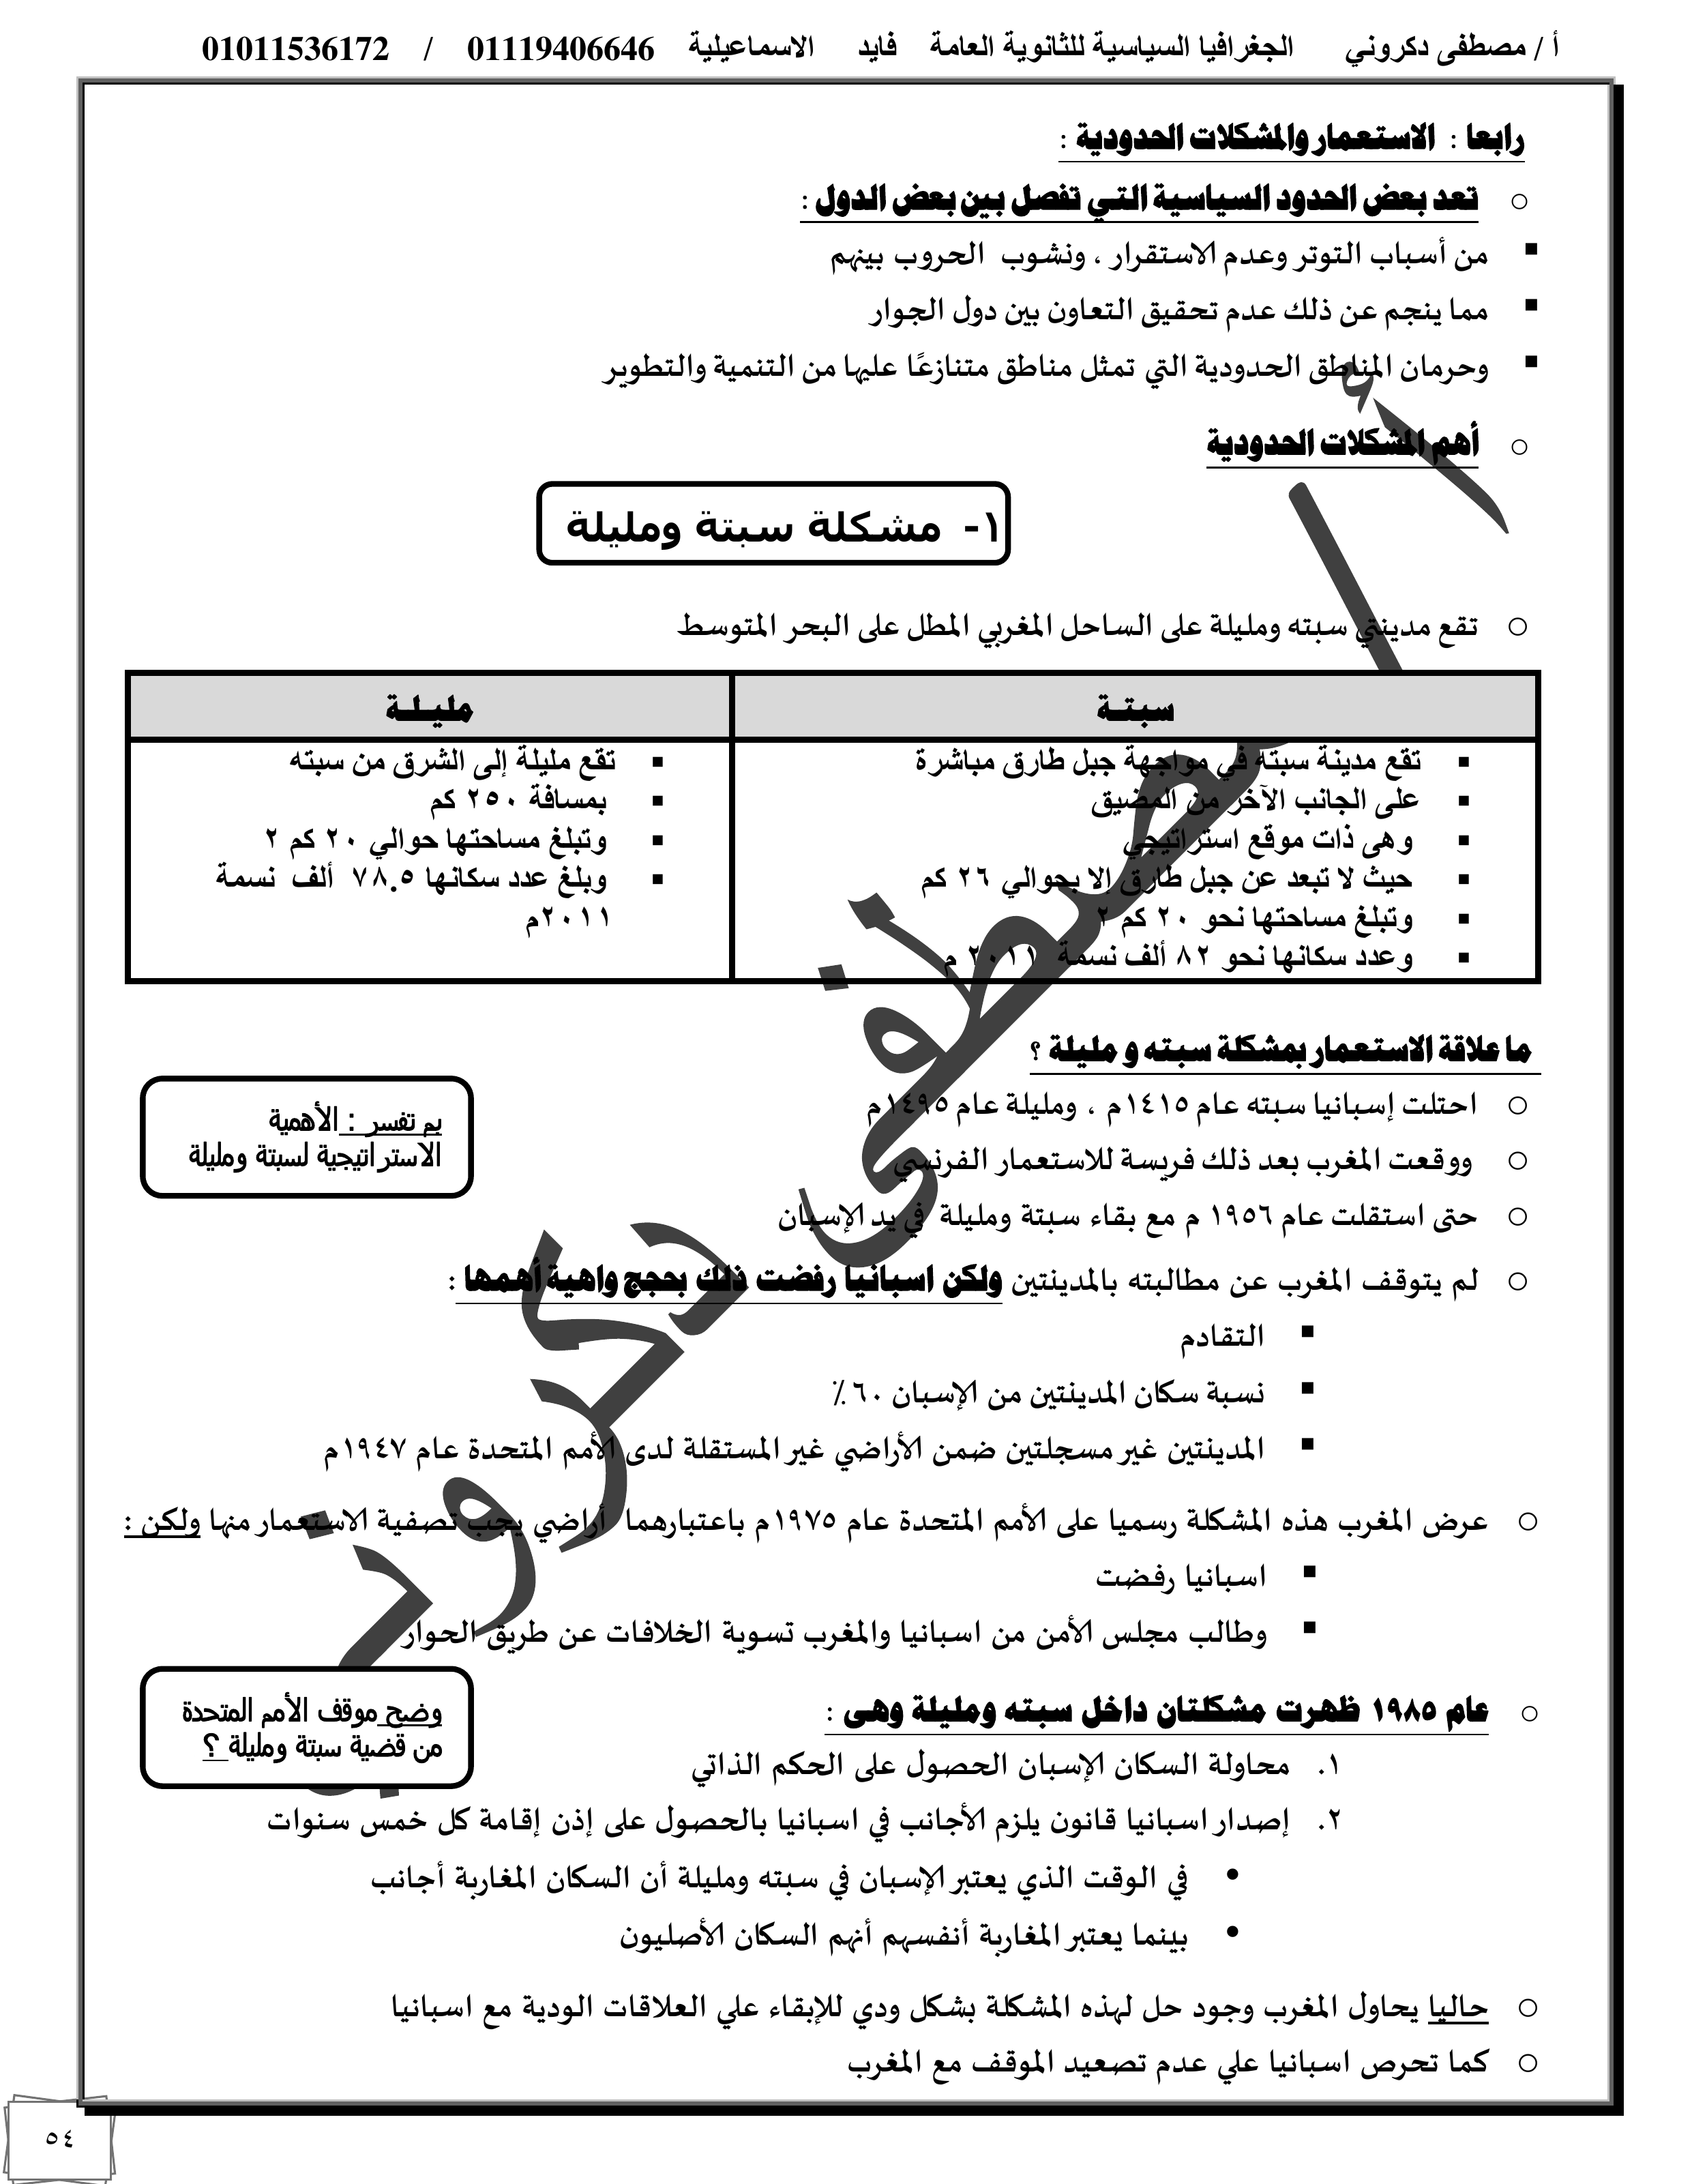 أ / مصطفى دكروني الجغرافيا السياسية للثانوية العامة فايد الاسماعيلية 01119406646 / 01011536172
رابعا : الاستعمار والمشكلات الحدودية :
○ تعد بعض الحدود السياسية التي تفصل بين بعض الدول :
▪ من أسباب التوتر وعدم الاستقرار ، ونشوب الحروب بينهم
▪ مما ينجم عن ذلك عدم تحقيق التعاون بين دول الجوار
▪ وحرمان المناطق الحدودية التي تمثل مناطق متنازعًا عليها من التنمية والتطوير
○ أهم المشكلات الحدودية
١- مشكلة سبتة ومليلة
○ تقع مدينتي سبته ومليلة على الساحل المغربي المطل على البحر المتوسط
سبتـة
▪ تقع مدينة سبتة في مواجهة جبل طارق مباشرة
▪ على الجانب الآخر من المضيق
▪ وهى ذات موقع استراتيجي
▪ حيث لا تبعد عن جبل طارق إلا بحوالي ٢٦ كم
▪ وتبلغ مساحتها نحو ٢٠ كم ٢
▪ وعدد سكانها نحو ٨٢ ألف نسمة ٢٠١١ م
مليـلـة
▪ تقع مليلة إلى الشرق من سبته
▪ بمسافة ٢٥٠ كم
▪ وتبلغ مساحتها حوالي ٢٠ كم ٢
▪ وبلغ عدد سكانها ٧٨.٥ ألف نسمة
٢٠١١م
ما علاقة الاستعمار بمشكلة سبته و مليلة ؟
○ احتلت إسبانيا سبته عام ١٤١٥م ، ومليلة عام ١٤٩٥م
○ ووقعت المغرب بعد ذلك فريسة للاستعمار الفرنسي
○ حتى استقلت عام ١٩٥٦ م مع بقاء سبتة ومليلة في يد الإسبان
بم تفسر : الأهمية
الاستراتيجية لسبتة ومليلة
○ لم يتوقف المغرب عن مطالبته بالمدينتين ولكن اسبانيا رفضت ذلك بحجج واهية أهمها :
▪ التقادم
▪ نسبة سكان المدينتين من الإسبان ٦٠٪
▪ المدينتين غير مسجلتين ضمن الأراضي غير المستقلة لدى الأمم المتحدة عام ١٩٤٧م
○ عرض المغرب هذه المشكلة رسميا على الأمم المتحدة عام ١٩٧٥م باعتبارهما أراضي يجب تصفية الاستعمار منها ولكن :
▪ اسبانيا رفضت
▪ وطالب مجلس الأمن من اسبانيا والمغرب تسوية الخلافات عن طريق الحوار
○ عام ١٩٨٥ ظهرت مشكلتان داخل سبته ومليلة وهى :
وضح موقف الأمم المتحدة
من قضية سبتة ومليلة ؟
١. محاولة السكان الإسبان الحصول على الحكم الذاتي
٢. إصدار اسبانيا قانون يلزم الأجانب في اسبانيا بالحصول على إذن إقامة كل خمس سنوات
• في الوقت الذي يعتبر الإسبان في سبته ومليلة أن السكان المغاربة أجانب
• بينما يعتبر المغاربة أنفسهم أنهم السكان الأصليون
○ حاليا يحاول المغرب وجود حل لهذه المشكلة بشكل ودي للإبقاء علي العلاقات الودية مع اسبانيا
○ كما تحرص اسبانيا علي عدم تصعيد الموقف مع المغرب
٥٤
أ / مصطفى دكروني